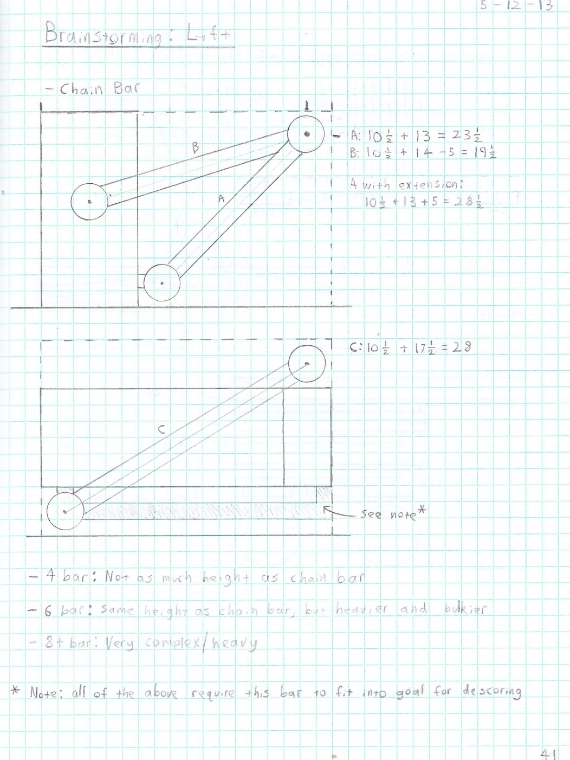 5-12-13
Brainstorming: Lift
- Chain Bar
B
A
A: 10 1/2 + 13 = 23 1/2
B: 10 1/2 + 14 - 5 = 19 1/2
A with extension:
10 1/2 + 13 + 5 = 28 1/2
C: 10 1/2 + 17 1/2 = 28
C
see note*
- 4 bar: Not as much height as chain bar
- 6 bar: Same height as chain bar, but heavier and bulkier
- 8+ bar: Very complex/heavy
* Note: all of the above require this bar to fit into goal for descoring
41